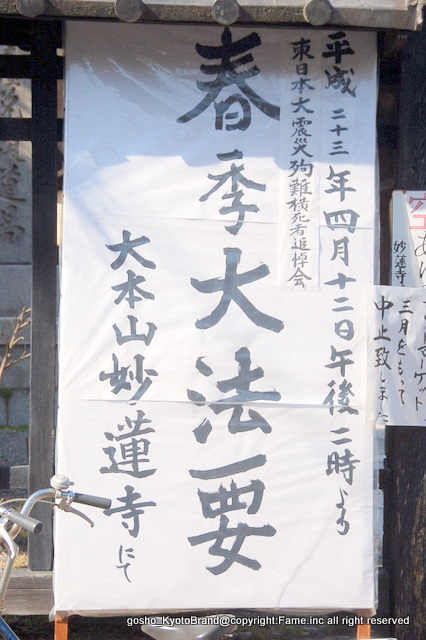 平成二十三年四月十二日午後二時より
東日本大震災殉難横死者追悼会
春季大法要
大本山妙蓮寺にて
妙蓮寺
三月をもって
中止致しました
gosho_KyotoBrand@copyright:Fame.inc all right reserved